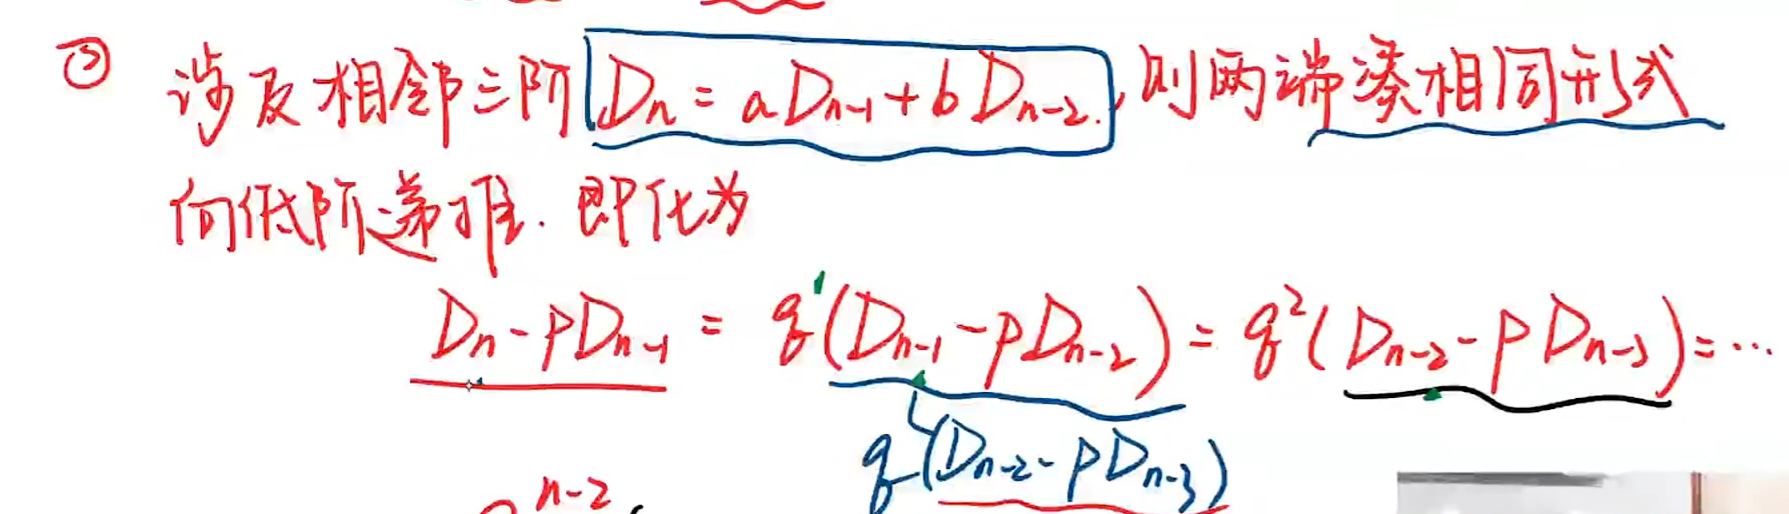 ② 涉及相邻三阶 Dn = aDn-1 + bDn-2, 则两端凑相同形式
向低阶递推. 即化为
Dn - pDn-1 = q(Dn-1 - pDn-2) = q²(Dn-2 - pDn-3) = ⋯
q(Dn-2 - pDn-3)
n-2